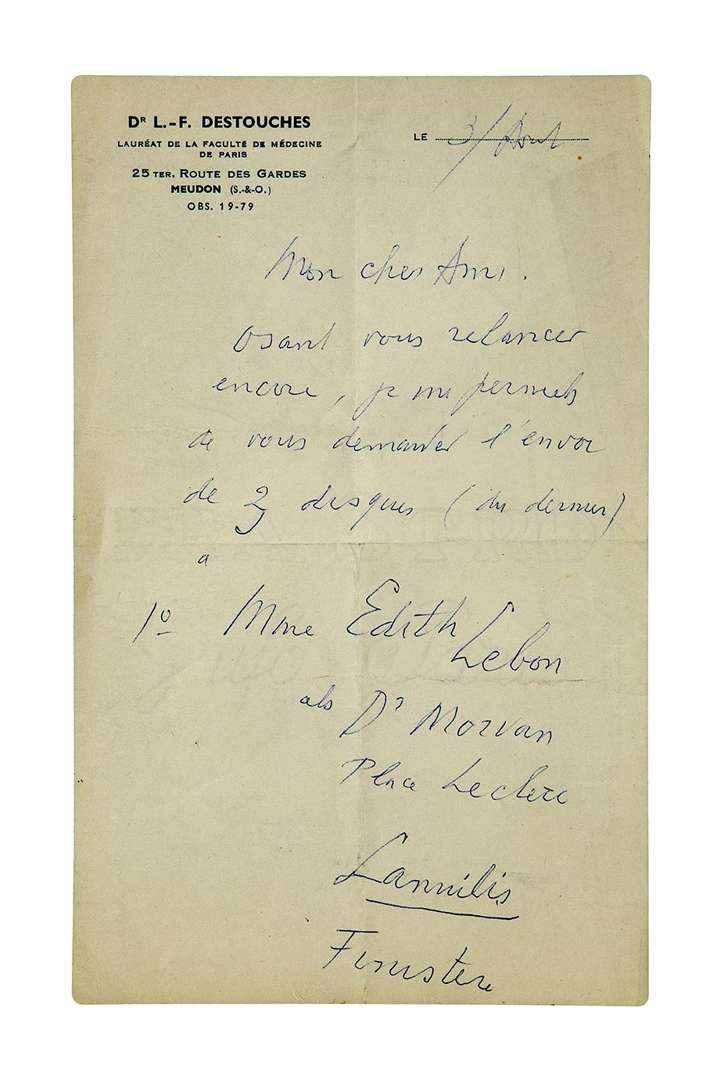 Dʳ L.-F. DESTOUCHES
LAURÉAT DE LA FACULTÉ DE MÉDECINE
DE PARIS
25 TER. ROUTE DES GARDES
MEUDON (S.-&-O.)
OBS. 19-79
LE 3/ Aout
Mon cher Ami.
Osant vous relancer
encore, je me permets
de vous demander l'envoi
de 2 disques (du dernier)
a
1º Mme Edith
Lebon
als Dʳ Morvan
Place Leclerc
Lannilis
Finistere